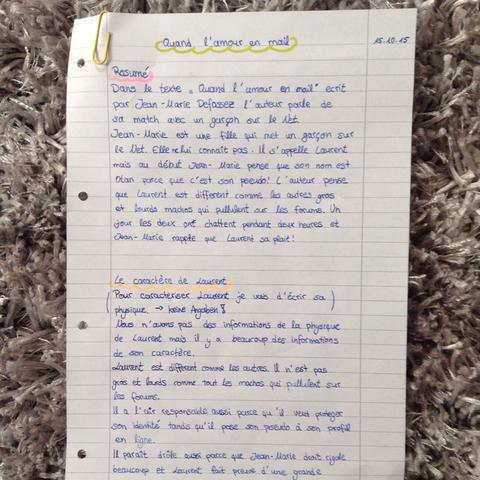 Quand l'amour en mail
15.10.15
Resumé
Dans le texte „Quand l'amour en mail" ecrit
par Jean-Marie Defossez l'auteur parle de
sa match avec un garçon sur le Net.
Jean-Marie est une fille qui met un garçon sur
le Net. Elle ne lui connaît pas. Il s'appelle Laurent
mais au début Jean-Marie pense que son nom est
Olan parce que c'est son pseudo! L'auteur pense
que Laurent est différent comme les autres gros
et lourds machos qui pullulent sur les forums. Un
jour les deux ont chattent pendant deux heures et
Jean-Marie rappte que Laurent sa plait!
Le caractère de Laurent
(Pour caracteriser Laurent je vais d'écrir sa)
physique → keine Angaben!
Nous n'avons pas des informations de la physique
de Laurent mais il y a beaucoup des informations
de son caractère.
Laurent est différent comme les autres. Il n'est pas
gros et lourds comme tout les machos qui pullulent sur
les forums.
Il a l'air responsable aussi parce qu'il veut protéger
son identité tandis qu'il pose son pseudo à son profil
en ligne.
Il paraît drôle aussi parce que Jean-Marie droit rigole
beaucoup et Laurent fait preuve d'une grande